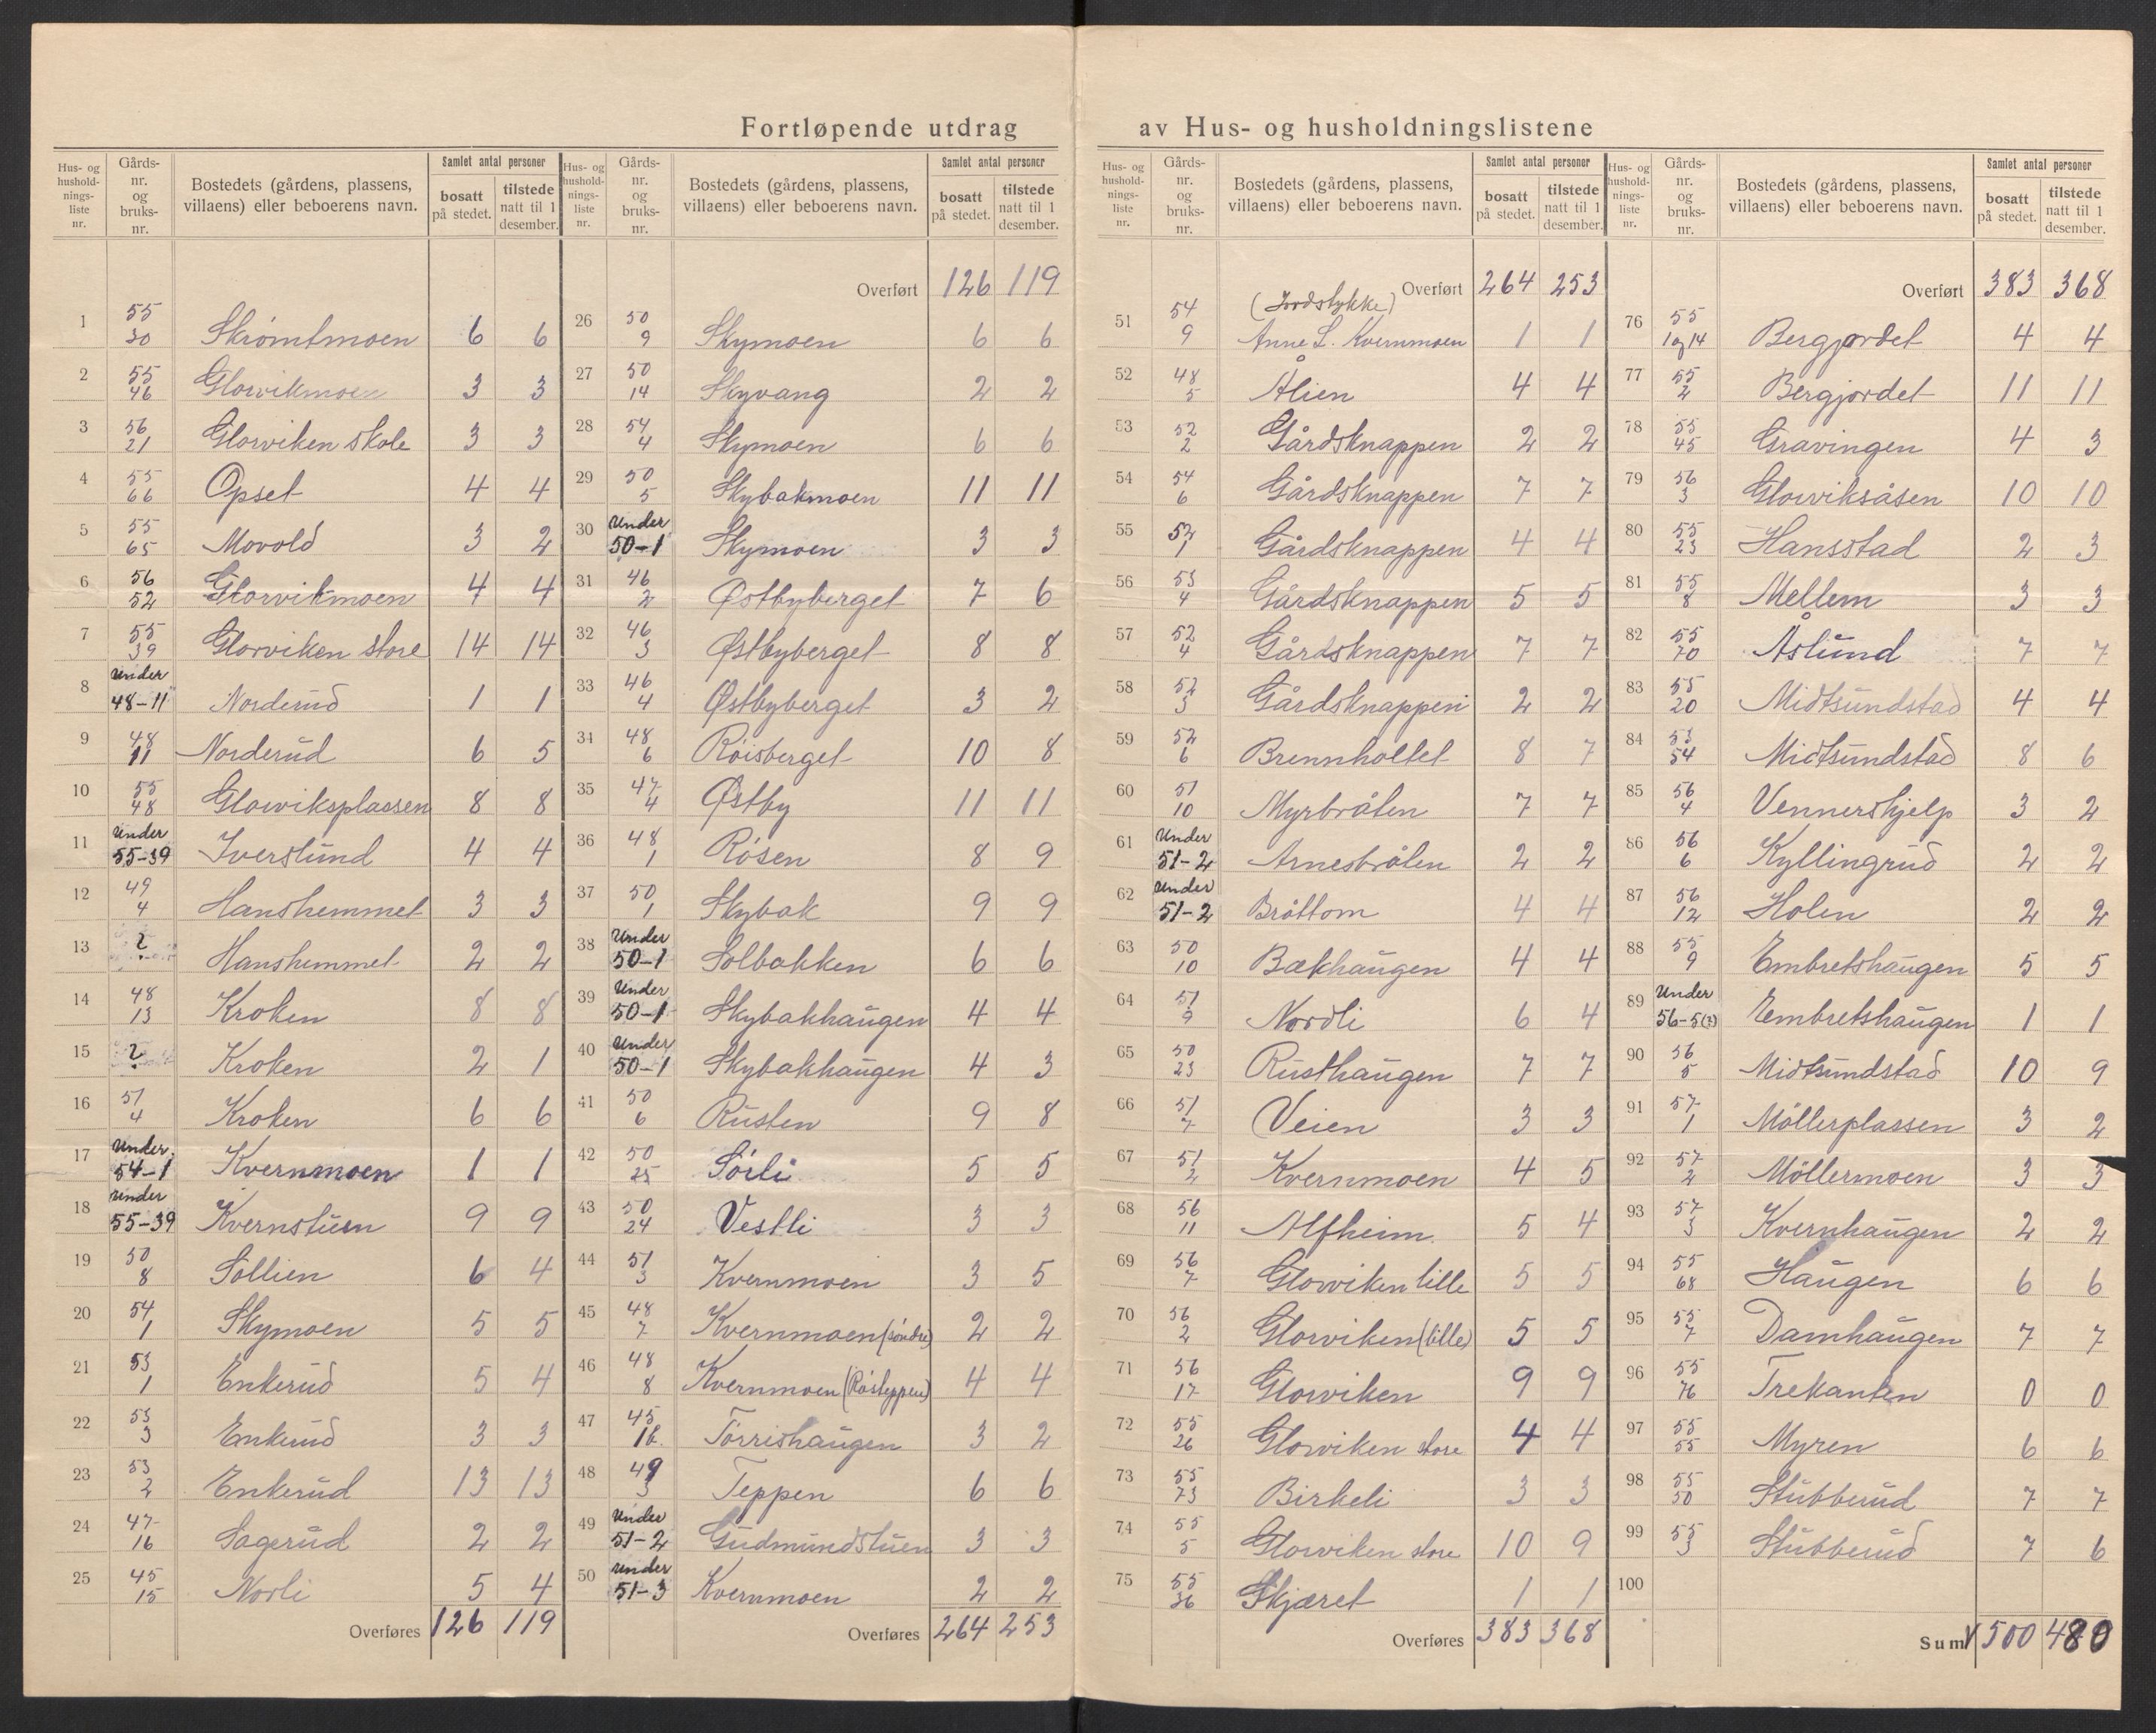 Fortløpende utdrag av Hus- og husholdningslistene
Hus- og husholdnings-liste nr. | Gårds-nr. og bruks-nr. | Bostedets (gårdens, plassens, villaens) eller beboerens navn. | Samlet antal personer bosatt på stedet. | tilstede natt til 1 desember.
1 | 55 30 | Skrømtmoen | 6 | 6
2 | 55 46 | Glorvikmoen | 3 | 3
3 | 56 21 | Glorviken skole | 3 | 3
4 | 55 66 | Opset | 4 | 4
5 | 55 65 | Movold | 3 | 2
6 | 56 52 | Glorvikmoen | 4 | 4
7 | 55 39 | Glorviken store | 14 | 14
8 | Under 48-11 | Norderud | 1 | 1
9 | 48 11 | Norderud | 6 | 5
10 | 55 48 | Glorviksplassen | 8 | 8
11 | Under 55-39 | Iverslund | 4 | 4
12 | 49 4 | Hanshemmet | 3 | 3
13 | ? | Hanshemmet | 2 | 2
14 | 48 13 | Kroken | 8 | 8
15 | ? | Kroken | 2 | 1
16 | 51 4 | Kroken | 6 | 6
17 | Under 54-1 | Kvernmoen | 1 | 1
18 | Under 55-39 | Kvernstuen | 9 | 9
19 | 50 8 | Sollien | 6 | 4
20 | 54 1 | Skymoen | 5 | 5
21 | 53 1 | Enkerud | 5 | 4
22 | 53 3 | Enkerud | 3 | 3
23 | 53 2 | Enkerud | 13 | 13
24 | 47 16 | Sagerud | 2 | 2
25 | 45 15 | Norli | 5 | 4
Overføres 126 119
Hus- og husholdnings-liste nr. | Gårds-nr. og bruks-nr. | Bostedets (gårdens, plassens, villaens) eller beboerens navn. | Samlet antal personer bosatt på stedet. | tilstede natt til 1 desember.
Overført 126 119
26 | 50 9 | Skymoen | 6 | 6
27 | 50 14 | Skyvang | 2 | 2
28 | 54 4 | Skymoen | 6 | 6
29 | 50 5 | Skybakmoen | 11 | 11
30 | Under 50-1 | Skymoen | 3 | 3
31 | 46 2 | Østbyberget | 7 | 6
32 | 46 3 | Østbyberget | 8 | 8
33 | 46 4 | Østbyberget | 3 | 2
34 | 48 6 | Röisberget | 10 | 8
35 | 47 4 | Østby | 11 | 11
36 | 48 1 | Rösen | 8 | 9
37 | 50 1 | Skybak | 9 | 9
38 | Under 50-1 | Solbakken | 6 | 6
39 | Under 50-1 | Skybakhaugen | 4 | 4
40 | Under 50-1 | Skybakhaugen | 4 | 3
41 | 50 6 | Rusten | 9 | 8
42 | 50 25 | Sörli | 5 | 5
43 | 50 24 | Vestli | 3 | 3
44 | 51 3 | Kvernmoen | 3 | 5
45 | 48 7 | Kvernmoen (söndre) | 2 | 2
46 | 48 8 | Kvernmoen (Rösteppen) | 4 | 4
47 | 45 16 | Törrishaugen | 3 | 2
48 | 49 3 | Teppen | 6 | 6
49 | Under 51-2 | Gudmundstuen | 3 | 3
50 | Under 51-3 | Kvernmoen | 2 | 2
Overføres 264 253
Hus- og husholdnings-liste nr. | Gårds-nr. og bruks-nr. | Bostedets (gårdens, plassens, villaens) eller beboerens navn. | Samlet antal personer bosatt på stedet. | tilstede natt til 1 desember.
Overført 264 253
(Jordstykke)
51 | 54 9 | Anne L. Kvernmoen | 1 | 1
52 | 48 5 | Ålien | 4 | 4
53 | 52 2 | Gårdsknappen | 2 | 2
54 | 54 6 | Gårdsknappen | 7 | 7
55 | 52 1 | Gårdsknappen | 4 | 4
56 | 53 4 | Gårdsknappen | 5 | 5
57 | 52 4 | Gårdsknappen | 7 | 7
58 | 52 3 | Gårdsknappen | 2 | 2
59 | 52 6 | Brennholtet | 8 | 7
60 | 51 10 | Myrbråten | 7 | 7
61 | Under 51-2 | Arnesbråten | 2 | 2
62 | Under 51-2 | Bråttom | 4 | 4
63 | 50 10 | Bækhaugen | 4 | 4
64 | 51 9 | Nordli | 6 | 4
65 | 50 23 | Rusthaugen | 7 | 7
66 | 51 7 | Veien | 3 | 3
67 | 51 2 | Kvernmoen | 4 | 5
68 | 56 11 | Alfheim | 5 | 4
69 | 56 7 | Glorviken lille | 5 | 5
70 | 56 2 | Glorviken (lille) | 5 | 5
71 | 56 17 | Glorviken | 9 | 9
72 | 55 26 | Glorviken store | 4 | 4
73 | 55 73 | Birkeli | 3 | 3
74 | 55 5 | Glorviken store | 10 | 9
75 | 55 36 | Skjæret | 1 | 1
Overføres 383 368
Hus- og husholdnings-liste nr. | Gårds-nr. og bruks-nr. | Bostedets (gårdens, plassens, villaens) eller beboerens navn. | Samlet antal personer bosatt på stedet. | tilstede natt til 1 desember.
Overført 383 368
76 | 55 1 og 14 | Bergjordet | 4 | 4
77 | 55 2 | Bergjordet | 11 | 11
78 | 55 45 | Gravingen | 4 | 3
79 | 56 3 | Glorviksåsen | 10 | 10
80 | 55 23 | Hansstad | 2 | 3
81 | 55 8 | Mellem | 3 | 3
82 | 55 70 | Åslund | 7 | 7
83 | 55 20 | Midtsundstad | 4 | 4
84 | 53 54 | Midtsundstad | 8 | 6
85 | 56 4 | Vennershjelp | 3 | 2
86 | 56 6 | Kyllingrud | 2 | 2
87 | 56 12 | Holen | 2 | 2
88 | 55 9 | Embretshaugen | 5 | 5
89 | Under 56-5(?) | Embretshaugen | 1 | 1
90 | 56 5 | Midtsundstad | 10 | 9
91 | 57 1 | Möllerplassen | 3 | 2
92 | 57 2 | Möllermoen | 3 | 3
93 | 57 3 | Kvernhaugen | 2 | 2
94 | 55 68 | Haugen | 6 | 6
95 | 55 7 | Damhaugen | 7 | 7
96 | 55 76 | Trekanten | 0 | 0
97 | 55 55 | Myren | 6 | 6
98 | 55 50 | Stubberud | 7 | 7
99 | 55 3 | Stubberud | 7 | 6
100
Sum 500 480